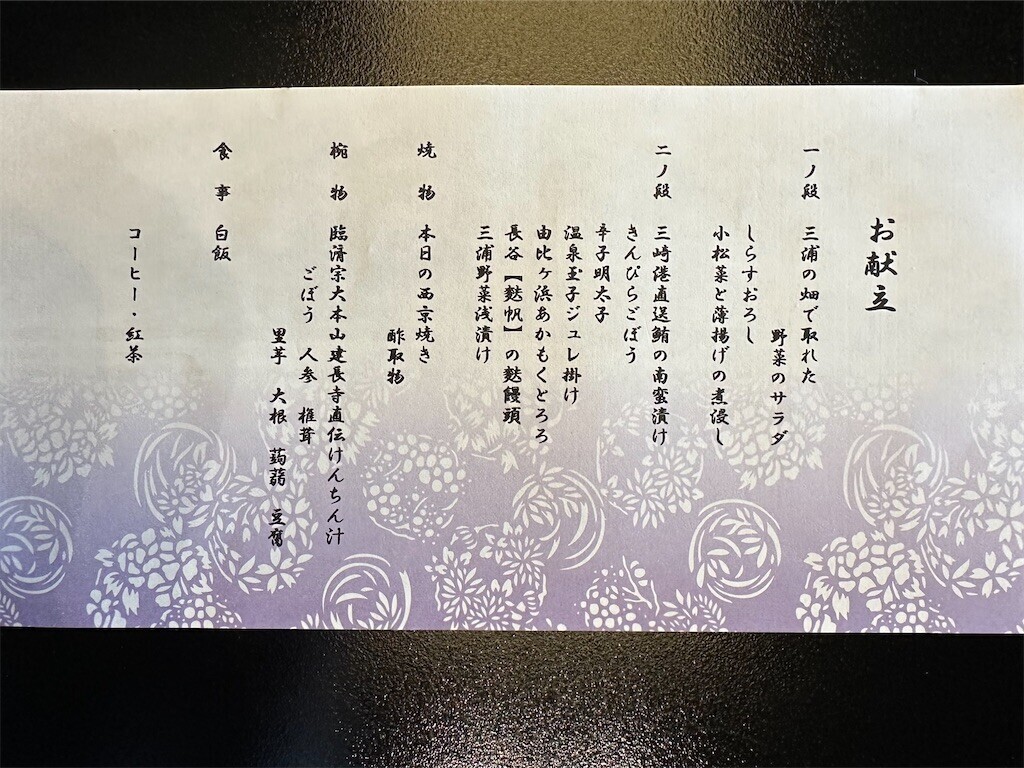 お献立
一ノ段 三浦の畑で取れた
野菜のサラダ
しらすおろし
小松菜と薄揚げの煮浸し
二ノ段 三崎港直送鮪の南蛮漬け
きんぴらごぼう
辛子明太子
温泉玉子ジュレ掛け
由比ヶ浜あかもくとろろ
長谷【麩帆】の麩饅頭
三浦野菜浅漬け
焼物 本日の西京焼き
酢取物
椀物 臨済宗大本山建長寺直伝けんちん汁
ごぼう 人参 椎茸
里芋 大根 蒟蒻 豆腐
食事 白飯
コーヒー・紅茶